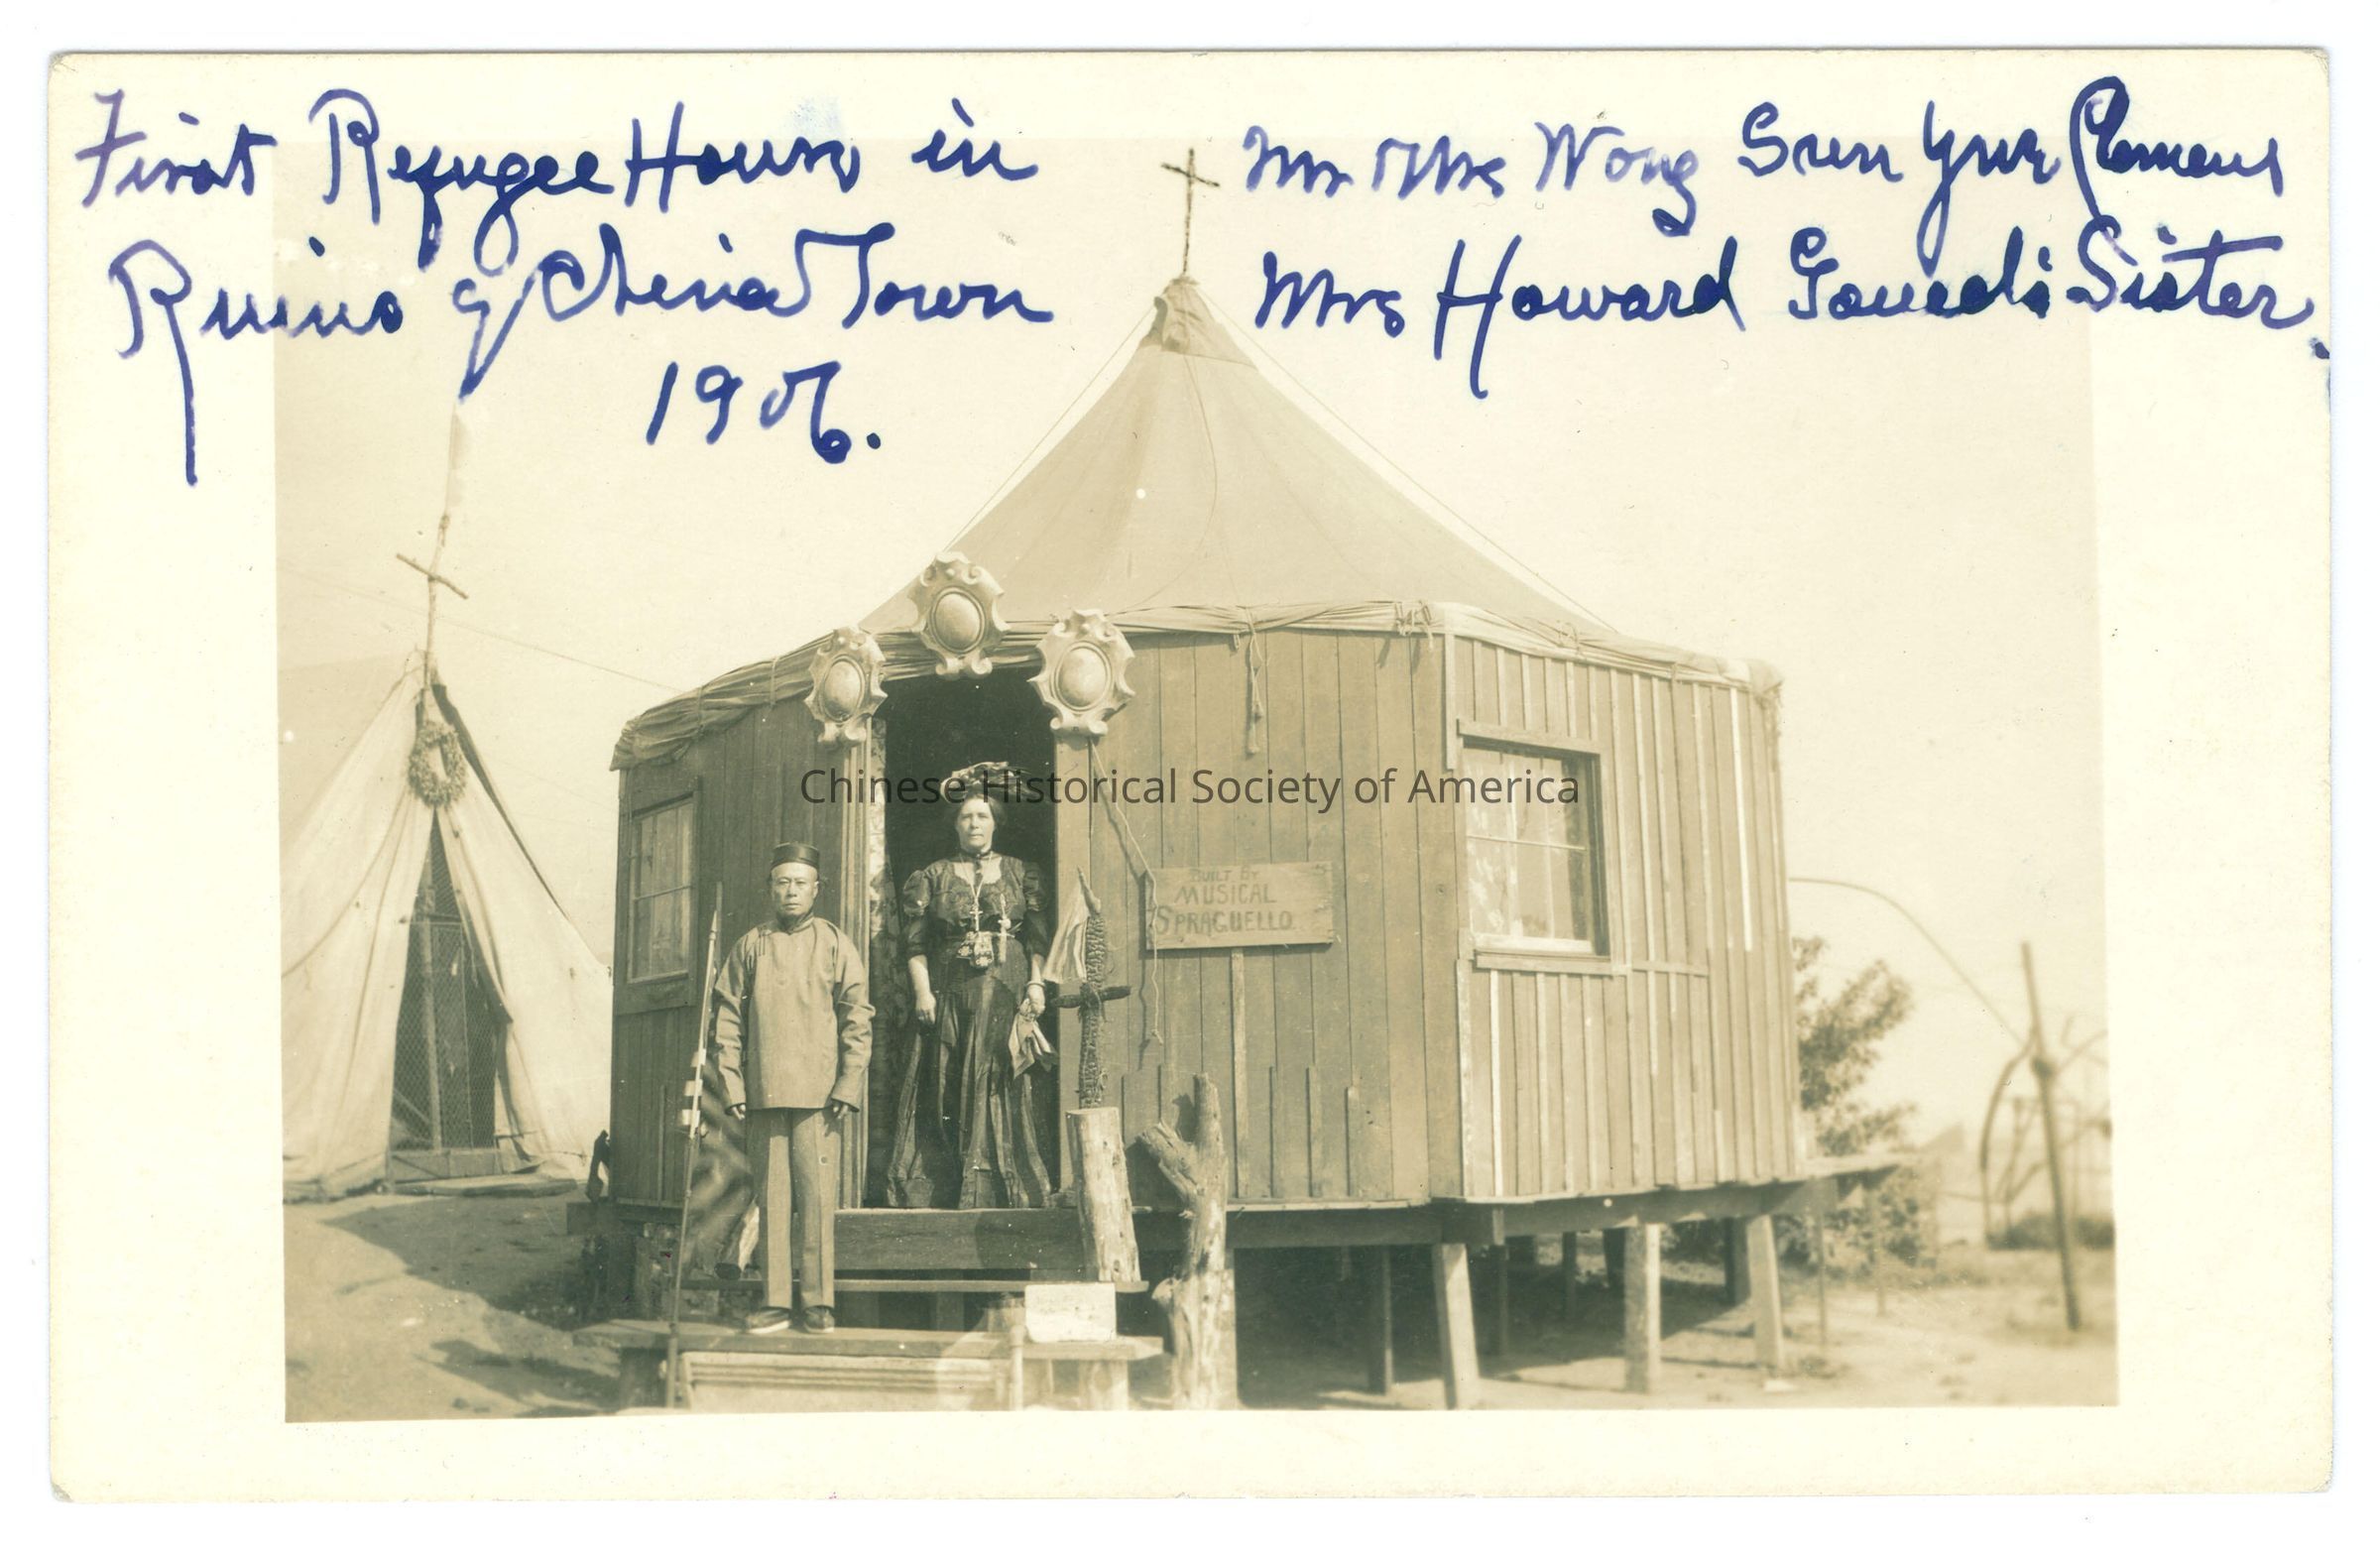 First Refugee House in
Ruins of China Town
1906.
Mr & Mrs Wong Sun Yue Clemens
Mrs Howard Gould's Sister.
Chinese Historical Society of America
BUILT BY
MUSICAL
SPRAGUELLO